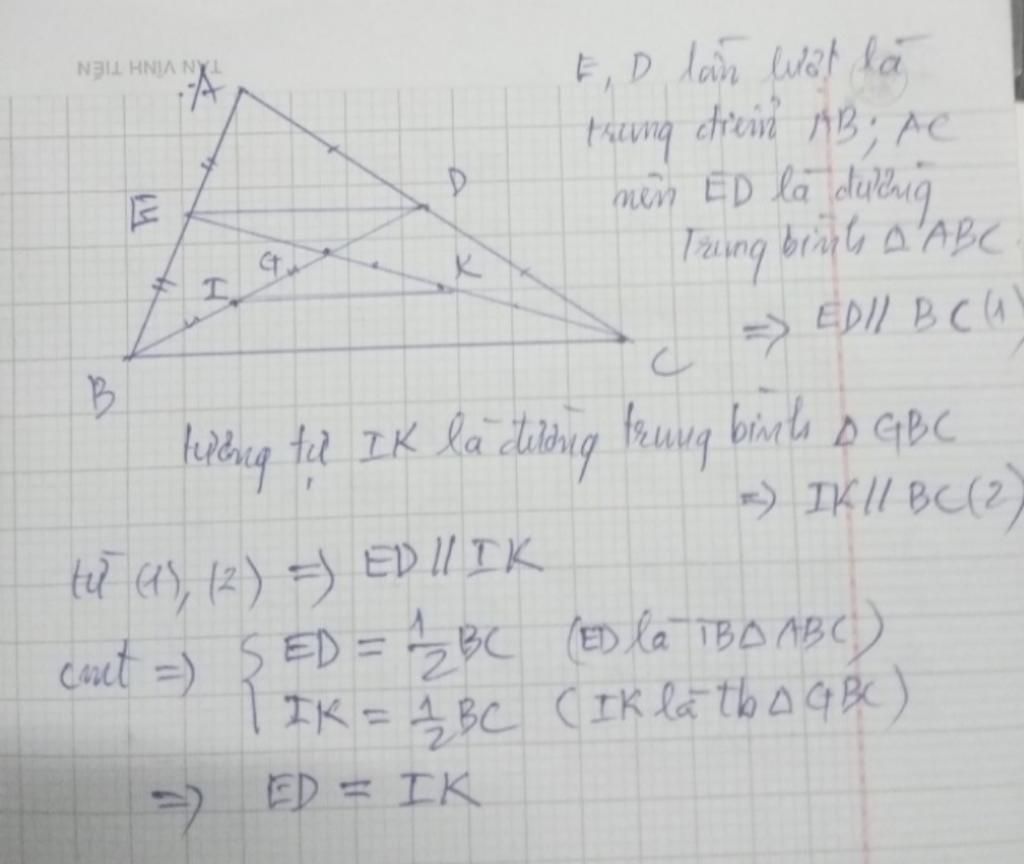 TÂN VĨNH TIẾN
A
E
D
G
I
K
B
C
E, D lần lượt là
trung điểm AB; AC
nên ED là đường
Trung bình Δ ABC
=> ED // BC (1)
tương tự IK là đường trung bình Δ GBC
=> IK // BC (2)
từ (1), (2) => ED // IK
cmt => { ED = 1/2 BC (ED là TB Δ ABC)
IK = 1/2 BC (IK là tb Δ GBC)
=> ED = IK